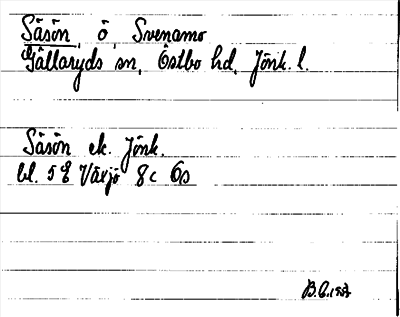 Såsön, ö, Svenamo
Gällaryds sn, Östbo hd, Jönk. l.
Såsön ek. Jönk.
bl. 5 E Växjö 8c Ös